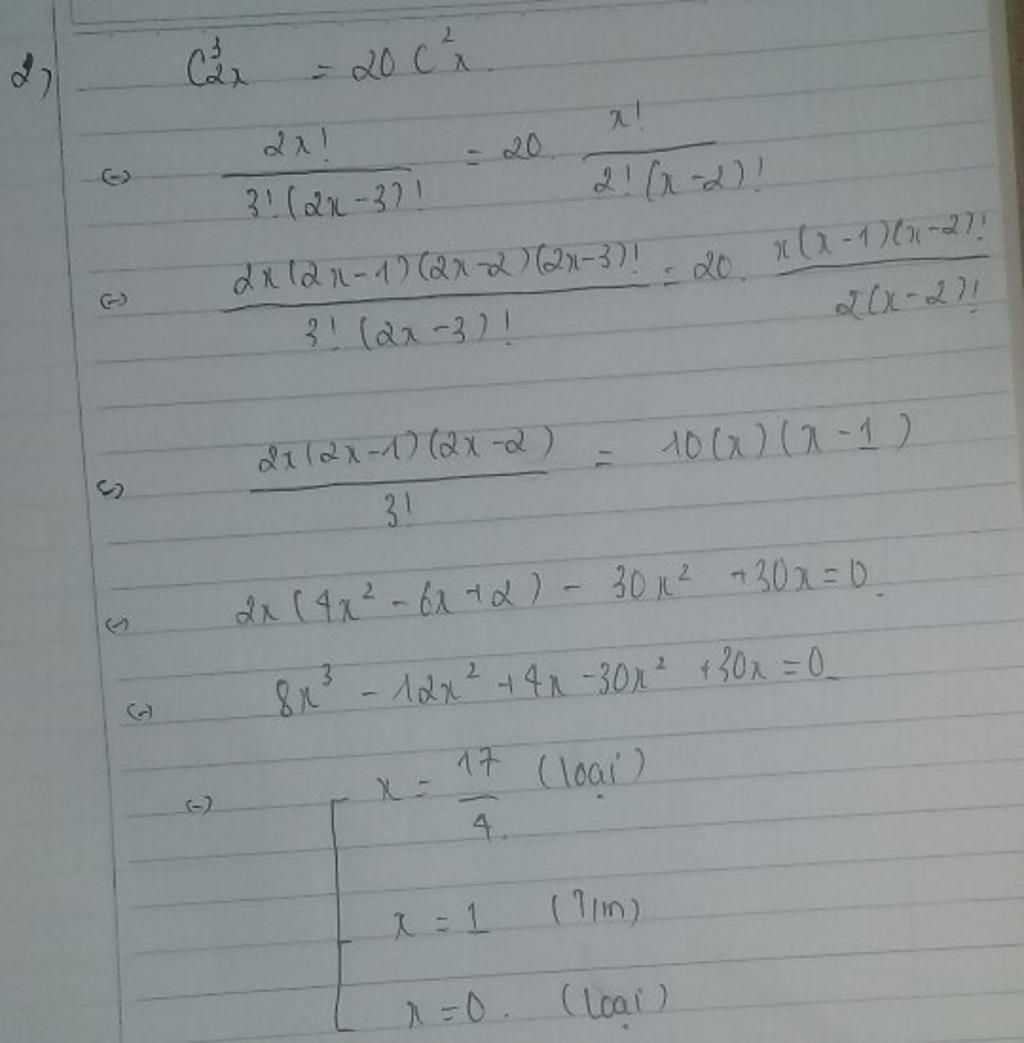 2) C³₂ₓ = 20 C²ₓ.
(=) 2x! / 3!(2x-3)! = 20. x! / 2!(x-2)!
(=) 2x(2x-1)(2x-2)(2x-3)! / 3!(2x-3)! = 20. x(x-1)(x-2)! / 2(x-2)!
(=) 2x(2x-1)(2x-2) / 3! = 10(x)(x-1)
(=) 2x(4x²-6x+2) - 30x² +30x=0.
(=) 8x³ - 12x² + 4x - 30x² + 30x = 0
(=) x = 17/4. (loại)
x = 1 (T/m)
x = 0. (loại)